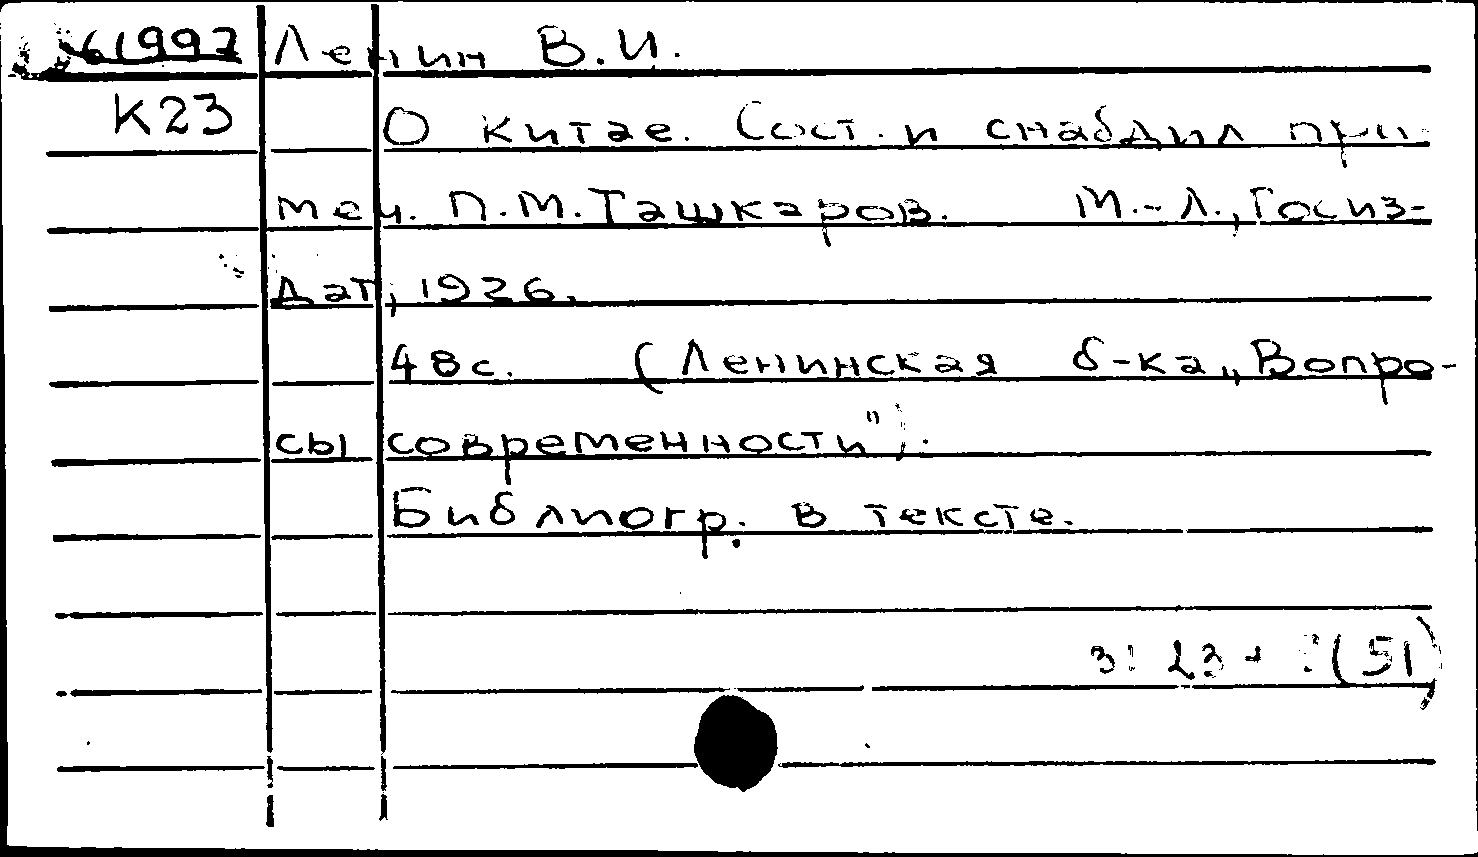 61997 Ленин В.И.
К23 О Китае. Сост. и снабдил при
меч. П.М. Ташкаров. М.-Л., Госиз-
дат, 1926.
48с. (Ленинская б-ка „Вопро-
сы современности").
Библиогр. в тексте.
(51)